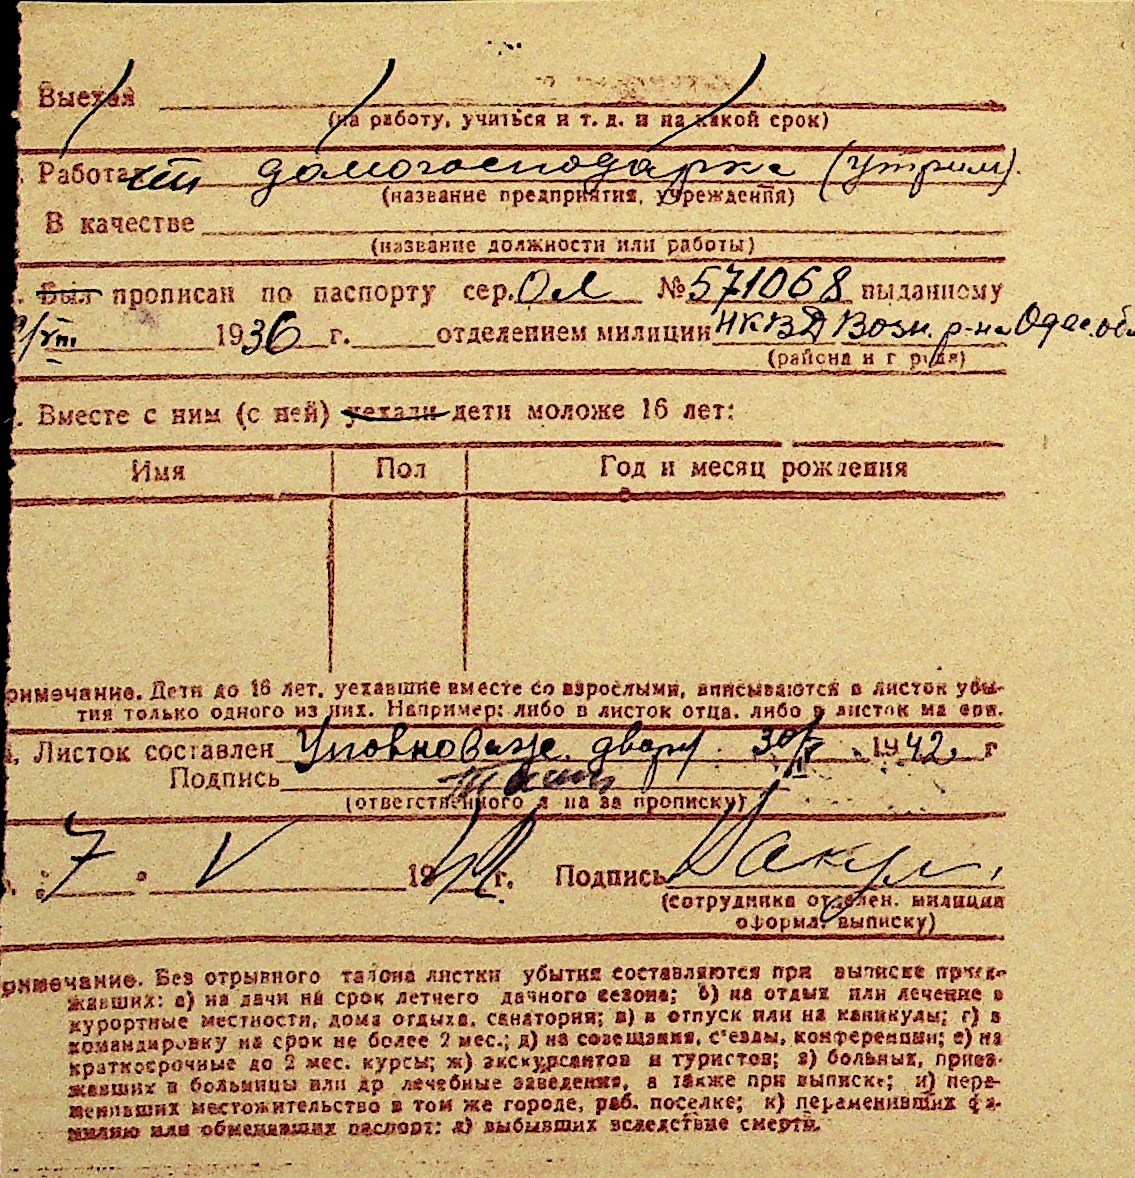 Выехал
(на работу, учиться и т. д. и на какой срок)
Работает домогосподарка (утрим).
(название предприятия, учреждения)
В качестве
(название должности или работы)
. Был прописан по паспорту сер. Ол № 571068 выданному
/VIII 1936 г. отделением милиции НКВД Возн. р-на Одес. обл
(района и г рода)
. Вместе с ним (с ней) уехали дети моложе 16 лет:
Имя Пол Год и месяц рождения
римечание. Дети до 16 лет, уехавшие вместе со взрослыми, вписываются в листок убы-
тия только одного из них. Например: либо в листок отца, либо в листок матери.
. Листок составлен Уповноваж. двору. 30/IV 1942 г
Подпись
(ответственного за прописку)
. 7 V 1942 г. Подпись
(сотрудника отделен. милиции
оформл. выписку)
римечание. Без отрывного талона листки убытия составляются при выписке приез-
жавших: а) на дачи на срок летнего дачного сезона; б) на отдых или лечение в
курортные местности, дома отдыха, санатория; в) в отпуск или на каникулы; г) в
командировку на срок не более 2 мес.; д) на совещания, с'езды, конференции; е) на
краткосрочные до 2 мес. курсы; ж) экскурсантов и туристов; з) больных, приез-
жавших в больницы или др лечебные заведения, а также при выписке; и) пере-
менивших местожительство в том же городе, раб. поселке; к) переменивших фа-
милию или обменявших паспорт; л) выбывших вследствие смерти.